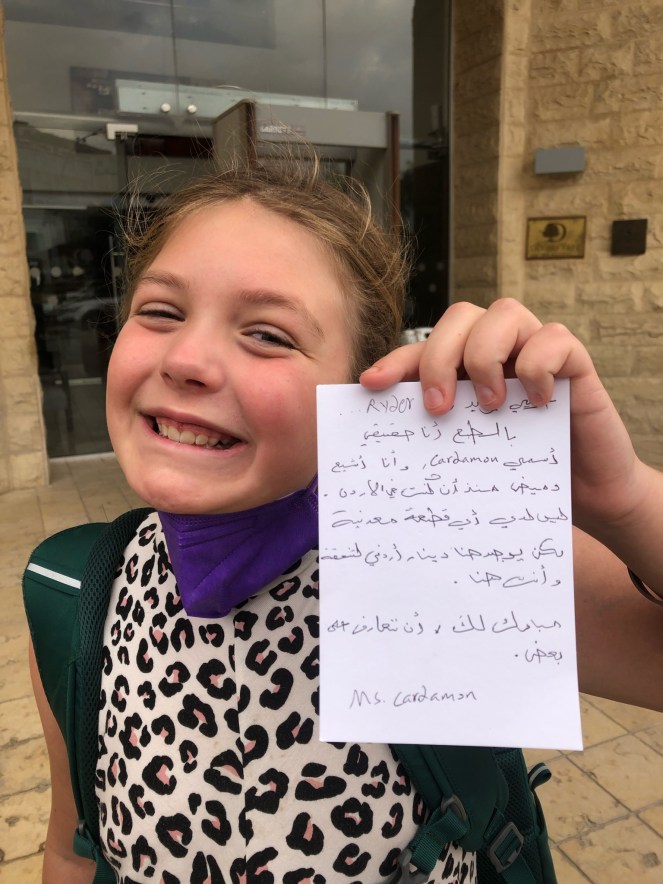 Ryder ...
بالطبع أنا حقيقي
أسمي Cardamon, وأنا أشبع
وميض منذ أن كنت في الأردن.
ليس لدي أي قطعة معدنية
لكن يوجد هنا دينار أردني لتنفقه
وأنت هنا.
مبارك لك، أن تتعارف على
بعض.
Ms. Cardamon